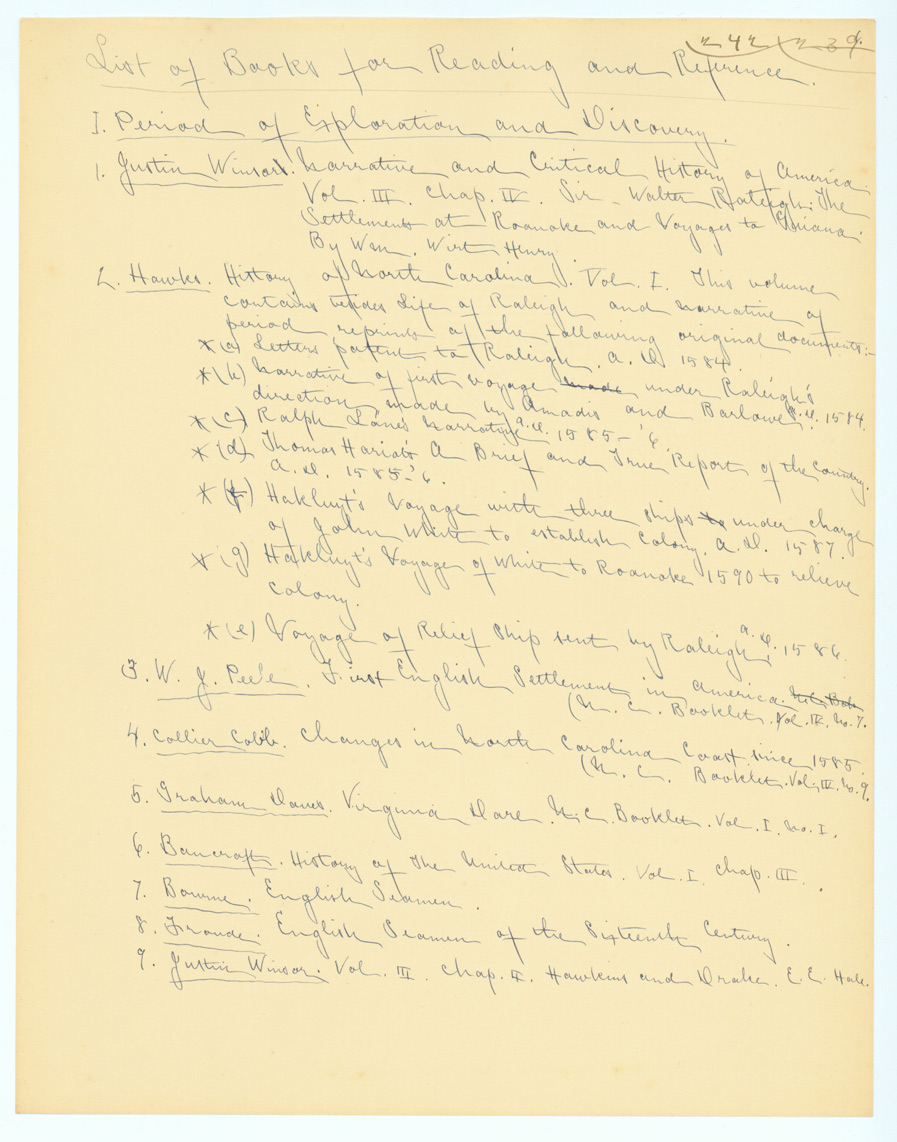 242 239.
List of Books for Reading and Reference.
I. Period of Exploration and Discovery.
1. Justin Winsor. Narrative and Critical History of America
Vol. III. Chap. IV. Sir Walter Raleigh: The
Settlements at Roanoke and Voyages to Guiana.
By Wm. Wirt Henry.
2. Hawks. History of North Carolina. Vol. I. This volume
contains besides Life of Raleigh and narrative of
period reprints of the following original documents:-
*(a) Letters patent to Raleigh. A.D. 1584.
*(b) Narrative of first voyage made under Raleigh's
direction made by Amadis and Barlowe. A.D. 1584.
*(c) Ralph Lane's Narrative A.D. 1585-'6.
*(d) Thomas Hariot's A Brief and True Report of the Country.
A.D. 1585-'6.
*(f) Hakluyt's Voyage with three ships to under charge
of John White to establish Colony. A.D. 1587.
*(g) Hakluyt's Voyage of White to Roanoke 1590 to relieve
Colony.
*(e) Voyage of Relief Ship sent by Raleigh, A.D. 1586.
3. W. J. Peele. First English Settlement in America.
(N. C. Booklet. Vol. IV. No. 7.
4. Collier Cobb. Changes in North Carolina Coast since 1585.
(N. C. Booklet. Vol. IV. No. 9.
5. Graham Daves. Virginia Dare. N.C. Booklet. Vol. I. No. I.
6. Bancroft. History of The United States. Vol. I. Chap. III.
7. Bourne. English Seamen.
8. Froude. English Seamen of the Sixteenth Century.
9. Justin Winsor. Vol. III. Chap. II. Hawkins and Drake. E. E. Hale.